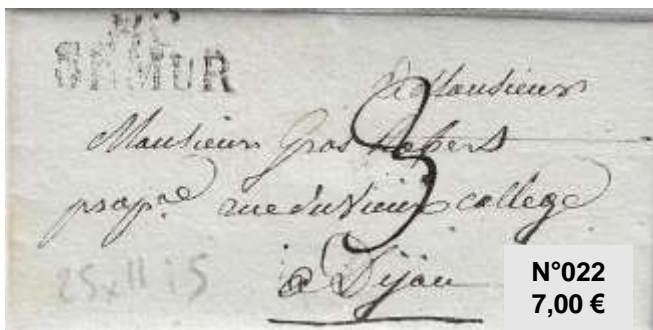 SEMUR
A Monsieur
Monsieur Gros
3
prop.re rue du Vieux college
a Dijon
N°022
7,00 €